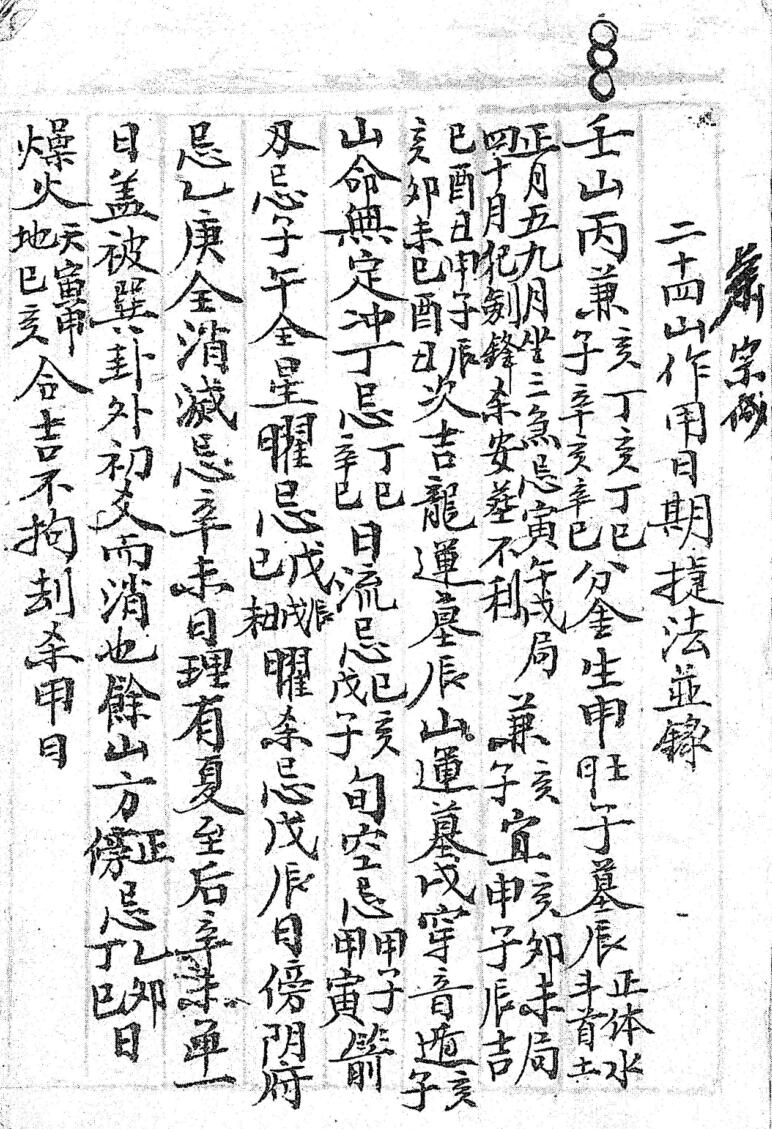 宗
二十四山作用日期捷法並錄
壬山丙兼亥子丁亥丁巳辛亥辛巳分金生申旺壬子墓辰正体水斗首土
正月五九月坐三煞忌寅午戌局四十月犯劍鋒杀安葬不利兼亥宜亥卯未局子申子辰吉
巳酉丑申子辰亥卯未巳酉丑次吉龍運墓辰山運墓戌穿音遁亥子
山命無定冲丁忌丁巳辛巳日流忌巳亥戊子旬空忌甲子甲寅箭
刃忌子午全星曜忌戊辰戊戌巳未日曜杀忌戊辰日傍阴府
忌乙庚全消滅忌辛未日理有夏至后辛未單一
日盖被巽卦外初爻而消也餘山方正傍忌乙卯丁巳日
燥火天寅申地巳亥合吉不拘刦杀甲日